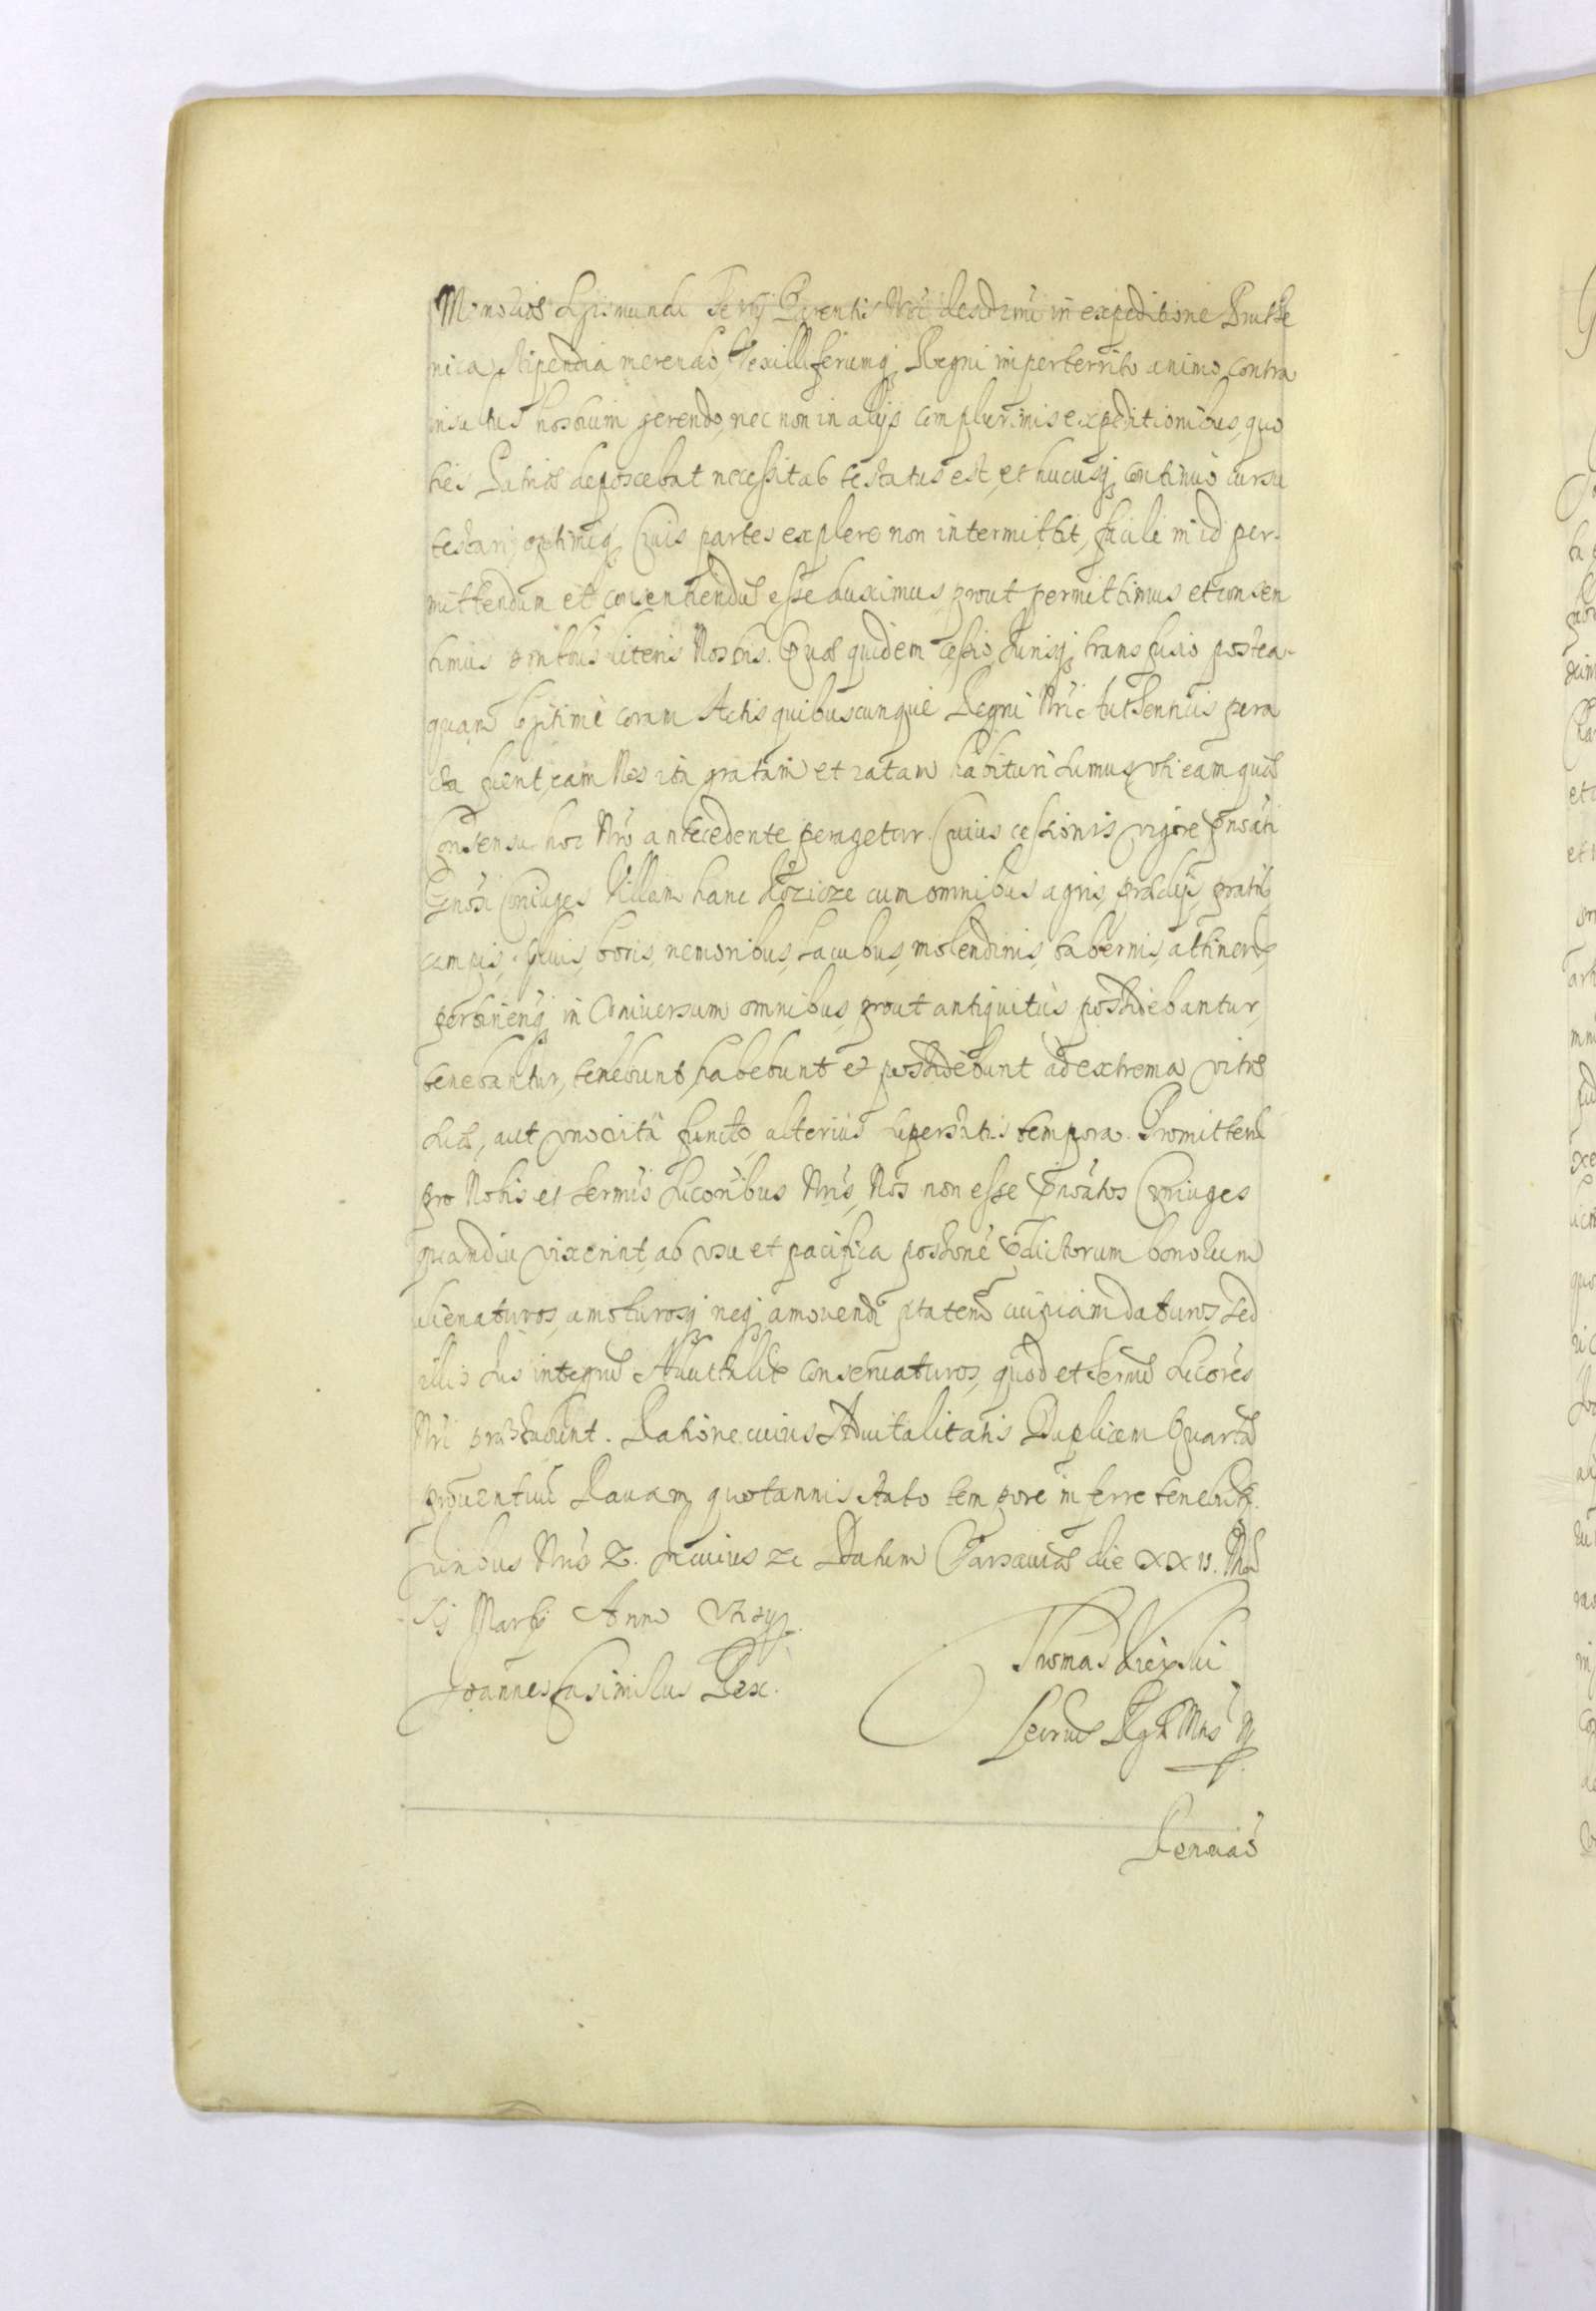 Memoriæ Sigismundi Tertij Parentis Nri desidermi in expeditione Pruthe
nica stipendia merendo, Vexilliferumq Regni imperterrito animo contra
insultus hostium gerendo, nec non in alijs complurimis expeditionibus, quo
ties Patriæ deposcebat necessitas testatus est, et hucusq continuo cursu
testari, optimiq Civis partes explere non intermittit, facile in id per-
mittendum et consentiendū esse duximus prout permittimus et consen
timus pntibus literis Nostris. Quæ quidem cessio, Jurisq transfusio postea-
quam legitime coram Actis quibuscunque Regni Nri Authenticis pera
cta fuerit, eam Nos ita gratam et ratam habituri sumus, uti eam quæ
Consensu hoc Nro antecedente peragetur. Cuius cessionis vigore pnoāti
Gnosi Coniuges Villam hanc Kozioze cum omnibus agris, prædijs, pratis,
campis, siluis, boris, nemoribus, lacubus, molendinis, tabernis, attinen,
pertinenq in Vniuersum omnibus, prout antiquitus possidebantur,
tenebantur, tenebunt, habebunt et possidebunt ad extrema vitæ
suæ, aut uno vitâ functo, alterius superstitis tempora. Promitten
pro Nobis et Sermis Sucoribus Nris, Nos non esse pnoātos Coniuges
quandiu vixerint, ab usu et pacifica possione pdictorum bonorum
alienaturos, amoturosq neq amovendi ptatem cuipiam daturos, sed
illis Jus integrū Aduitalitē conseruaturos, quod et Sermi Sucores
Nri præstabunt. Ratione cuius Aduitalitatis Duplicem Quartā
prouentuū Rauam quotannis stato tempore inferre tenebūtr.
Juribus Nris &. In cuius &c Datum Varsauiæ die XXII. Men
sis Martij Anno
Joannes Casimirus Rex.
Thomas Uieyski
Secrus Rgæ Mtis
Seruas